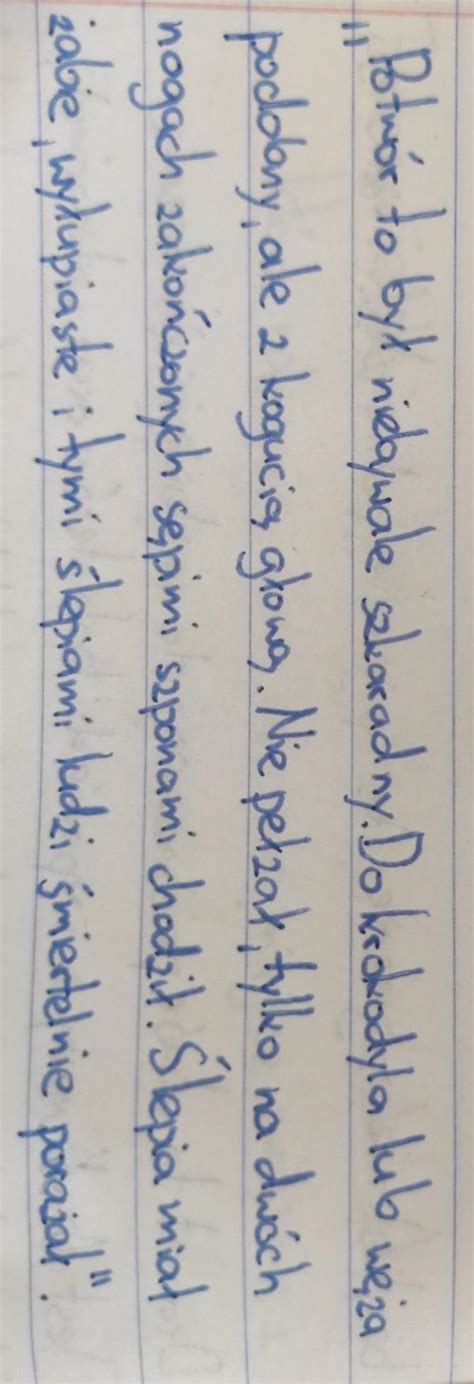 "Potwór to był niebywale szkaradny. Do krokodyla lub węża
podobny, ale z kogucią głową. Nie pełzał, tylko na dwóch
nogach zakończonych sępimi szponami chodził. Ślepia miał
żabie, wyłupiaste i tymi ślepiami ludzi śmiertelnie porażał".